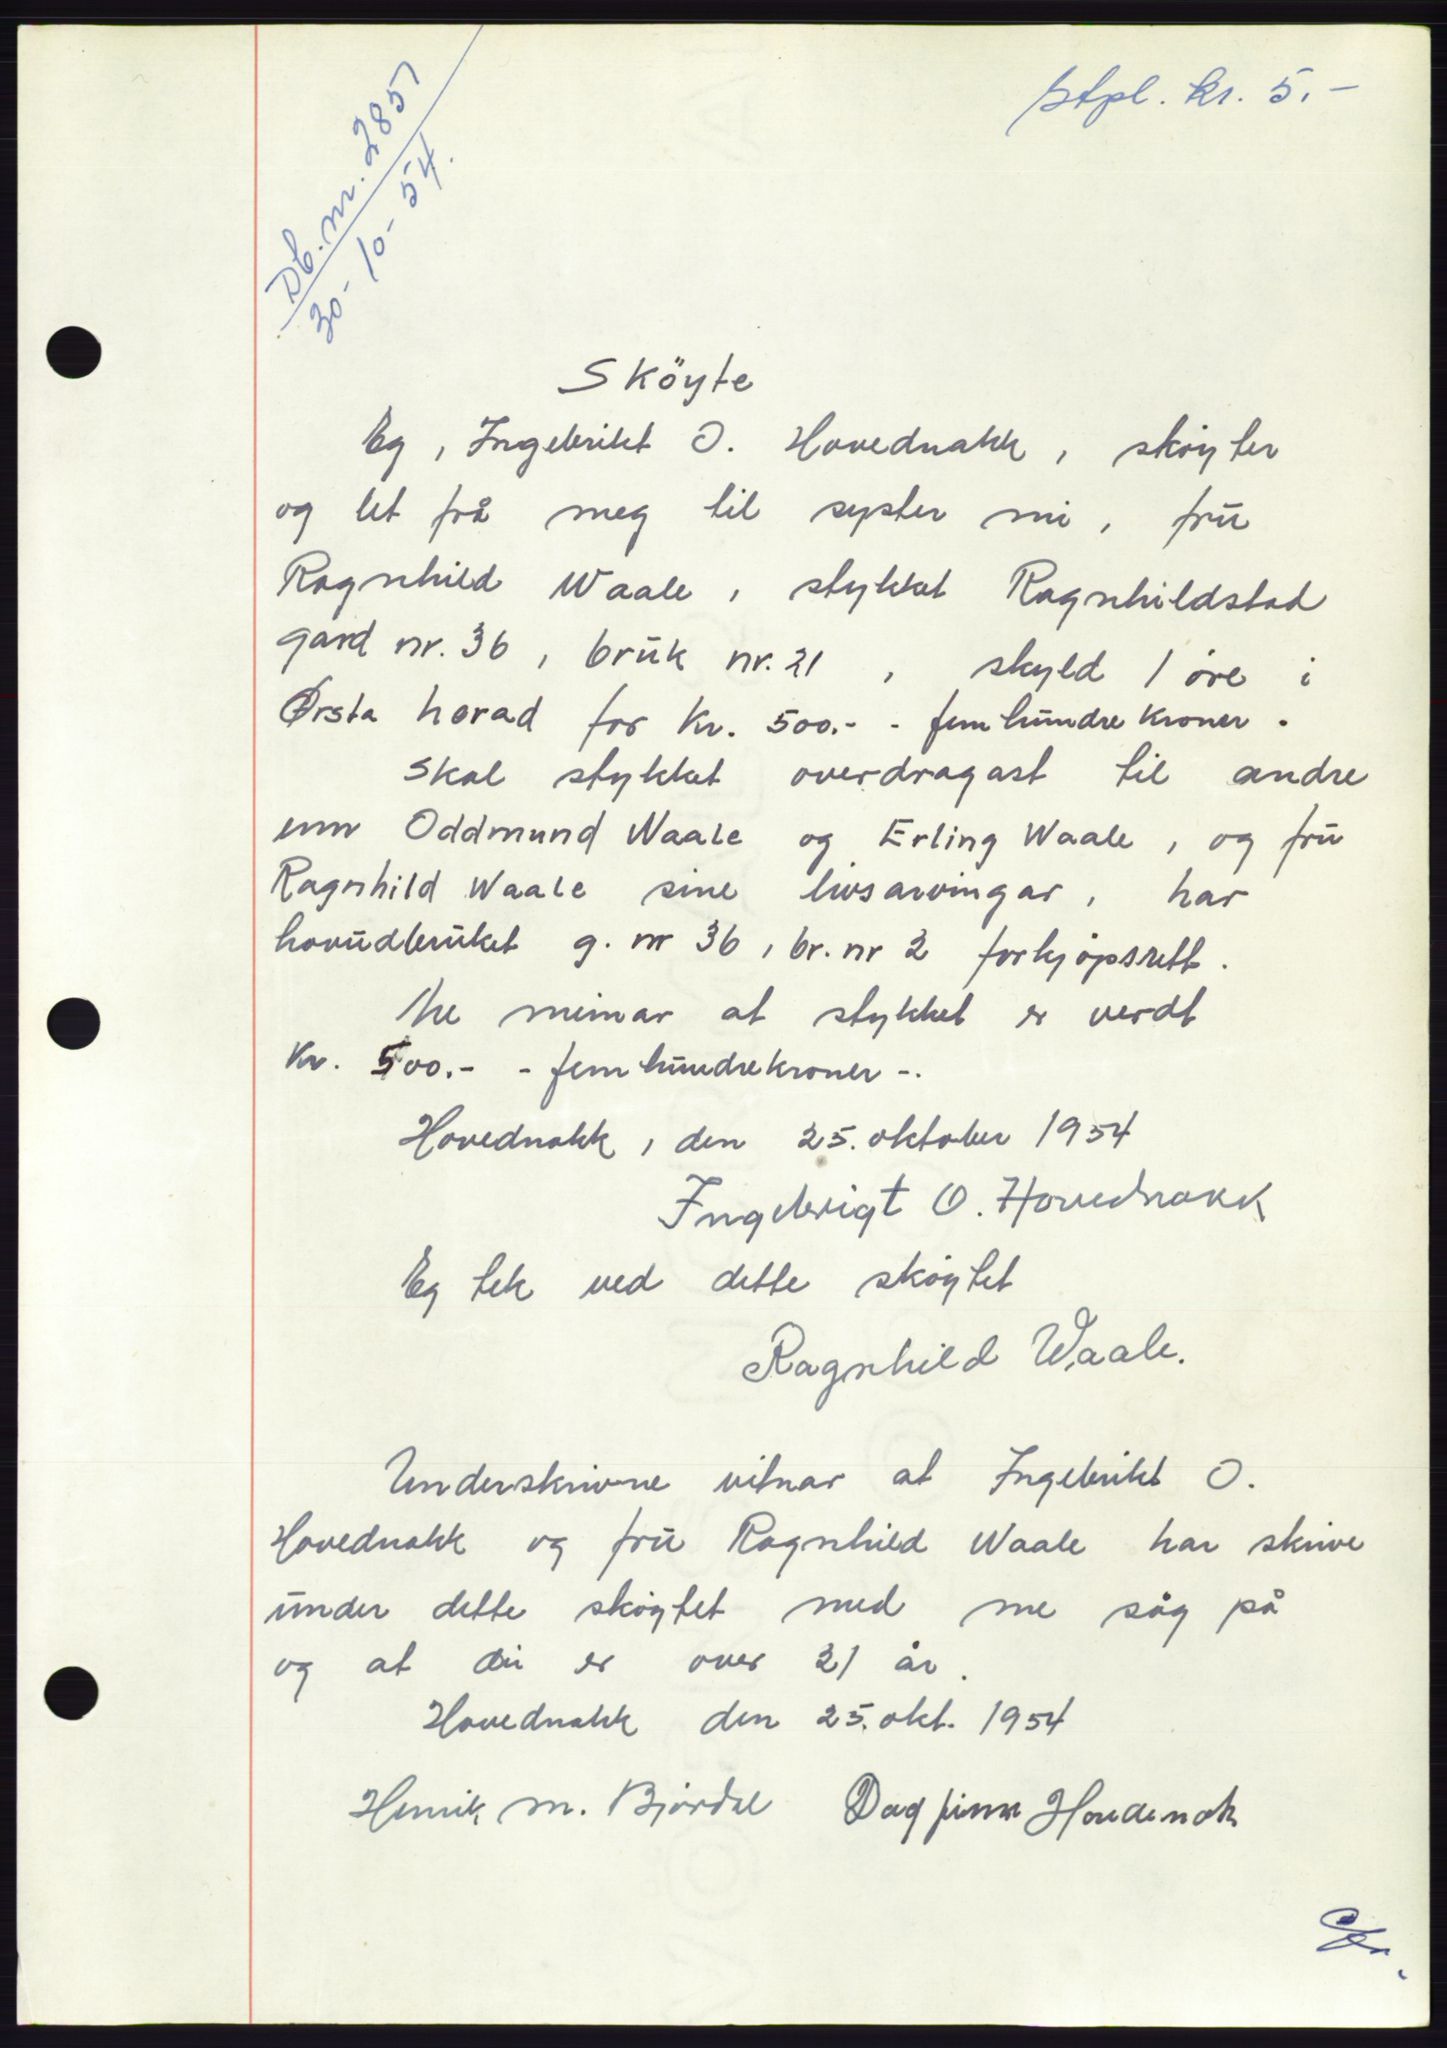 Stpl. kr. 5.-
Db. nr. 2851
30-10-54.
Sköyte
Eg, Ingebrikt O. Hovednakk, skøyter
og let frå meg til syster mi, frü
Ragnhild Waale, stykket Ragnhildstad
gard nr. 36, brük nr. 21, skyld 1 øre i
Ørsta herad for Kr. 500.- - fem hündre kroner.
Skal stykket overdragast til andre
enn Oddmund Waale og Erling Waale, og frü
Ragnhild Waale sine livsarvingar, har
hovüdbrüket g. nr 36, br. nr 2 forkjøpsrett.
Me meinar at stykket er verdt
Kr. 500.- - fem hündrekroner -.
Hovednakk, den 25. oktober 1954
Ingebrigt O. Hovednakk
Eg tek ved dette skøytet
Ragnhild Waale.
Underskrivne vitnar at Ingebrikt O.
Hovednakk og frü Ragnhild Waale har skrive
ünder dette skøytet med me såg på
og at dei er over 21 år.
Hovednakk den 25. okt. 1954
Henrik M. Bjørdal Dagfinn Hovdenak